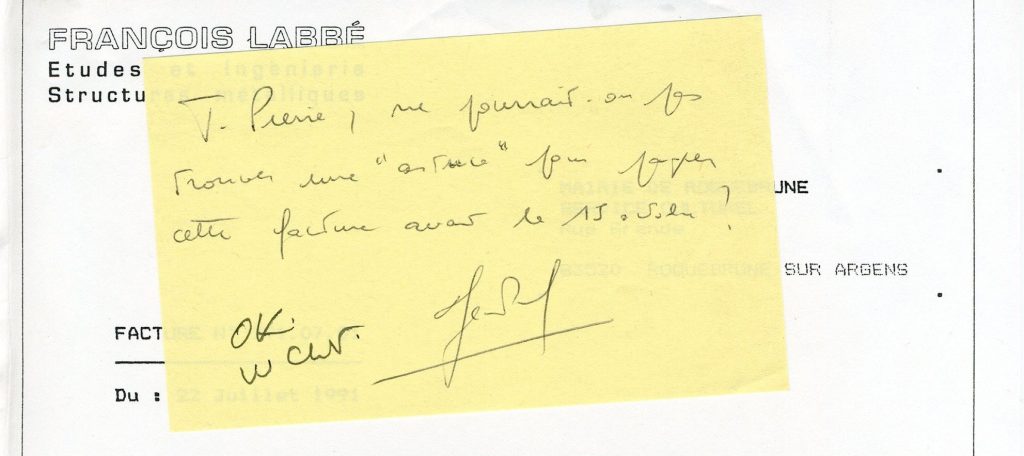 FRANÇOIS LABBÉ
Etudes et Ingénierie
Structures métalliques
J. Pierre, ne pourrait-on pas
trouver une "astuce" pour payer
cette facture avant le 15
MAIRIE DE ROQUEBRUNE
SERVICE CULTUREL
Rue Grande
83520 ROQUEBRUNE SUR ARGENS
FACTURE N°
OK.
Du : 22 Juillet 1991